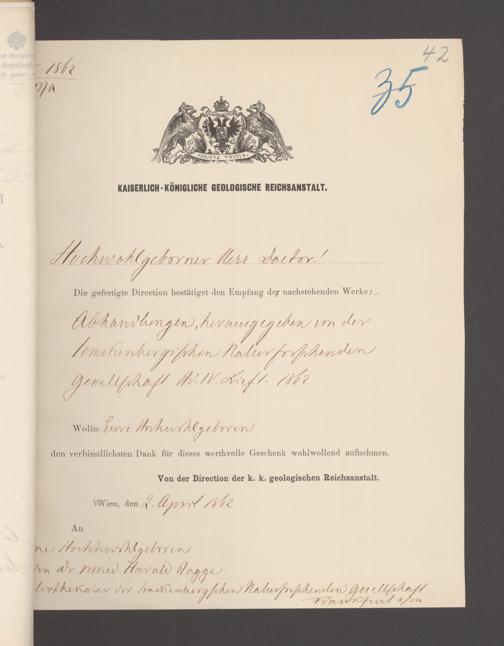 42
35
1862
KAISERLICH-KÖNIGLICHE GEOLOGISCHE REICHSANSTALT.
Hochwohlgeborner Herr Doctor!
Die gefertigte Direction bestätiget den Empfang der nachstehenden Werke:
Abhandlungen, herausgegeben von der
Senckenbergischen Naturforschenden
Gesellschaft Bd. IV. Lief. 1862
Wolle Eure Hochwohlgeboren
den verbindlichsten Dank für dieses werthvolle Geschenk wohlwollend aufnehmen.
Von der Direction der k. k. geologischen Reichsanstalt.
Wien, den 2. April 1862
An
Hochwohlgeboren
Dr med Harald
der Senckenbergischen Naturforschenden Gesellschaft
Frankfurt a/M